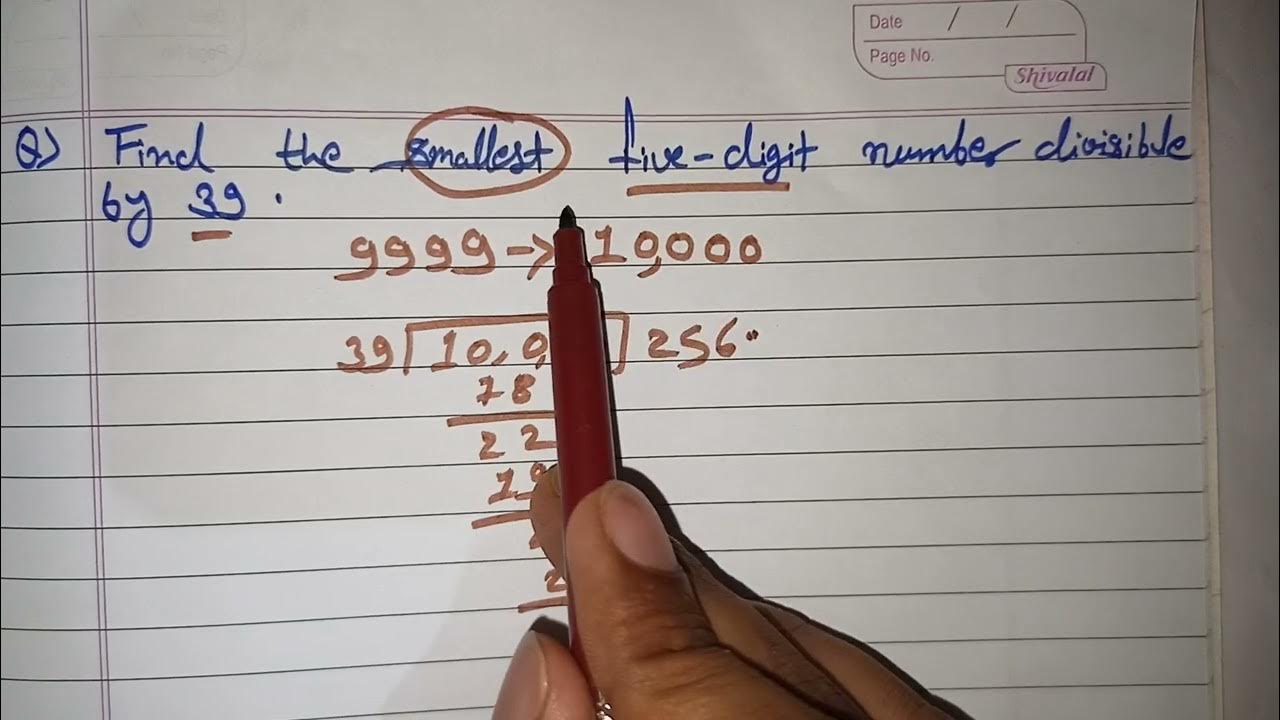 Date / /
Page No.
Shivalal
Q) Find the smallest five-digit number divisible
by 39.
9999 → 10,000
39 10,0 256
78
22
19
2